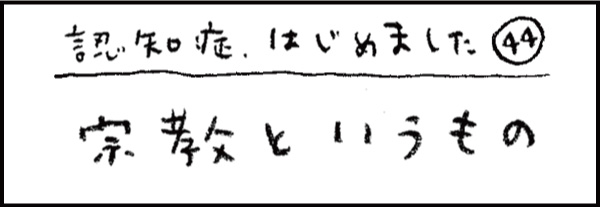 認知症、はじめました㊹
宗教というもの